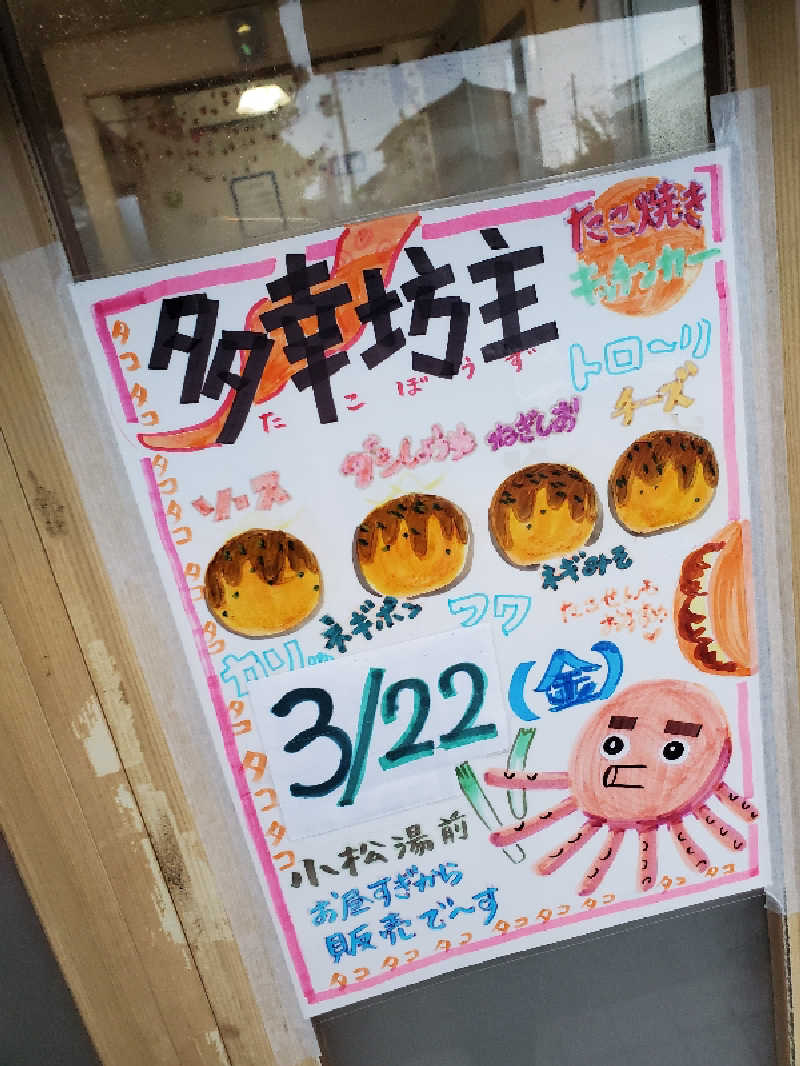 たこ焼き
キッチンカー
多幸坊主
たこぼうず
トロ〜リ
ソース
ダシしょうゆ
ねぎしお
チーズ
ネギポン
ネギみそ
カリッ
フワ
たこせんも
3/22(金)
小松湯前
お昼すぎから
販売で〜す
タコタコタコタコタコタコタコタコ
タコタコタコタコタコタコタコタコ